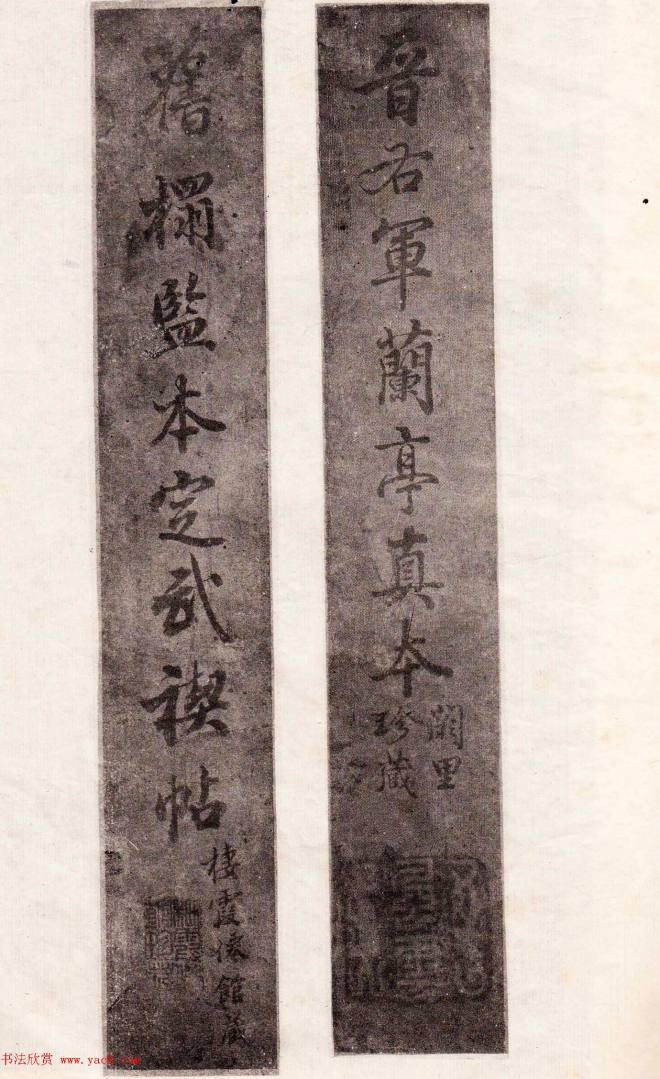 晉右軍蘭亭真本
闕里
珍藏
舊搨監本定武禊帖
棲霞僊館藏
书法欣赏 www.yac8.com